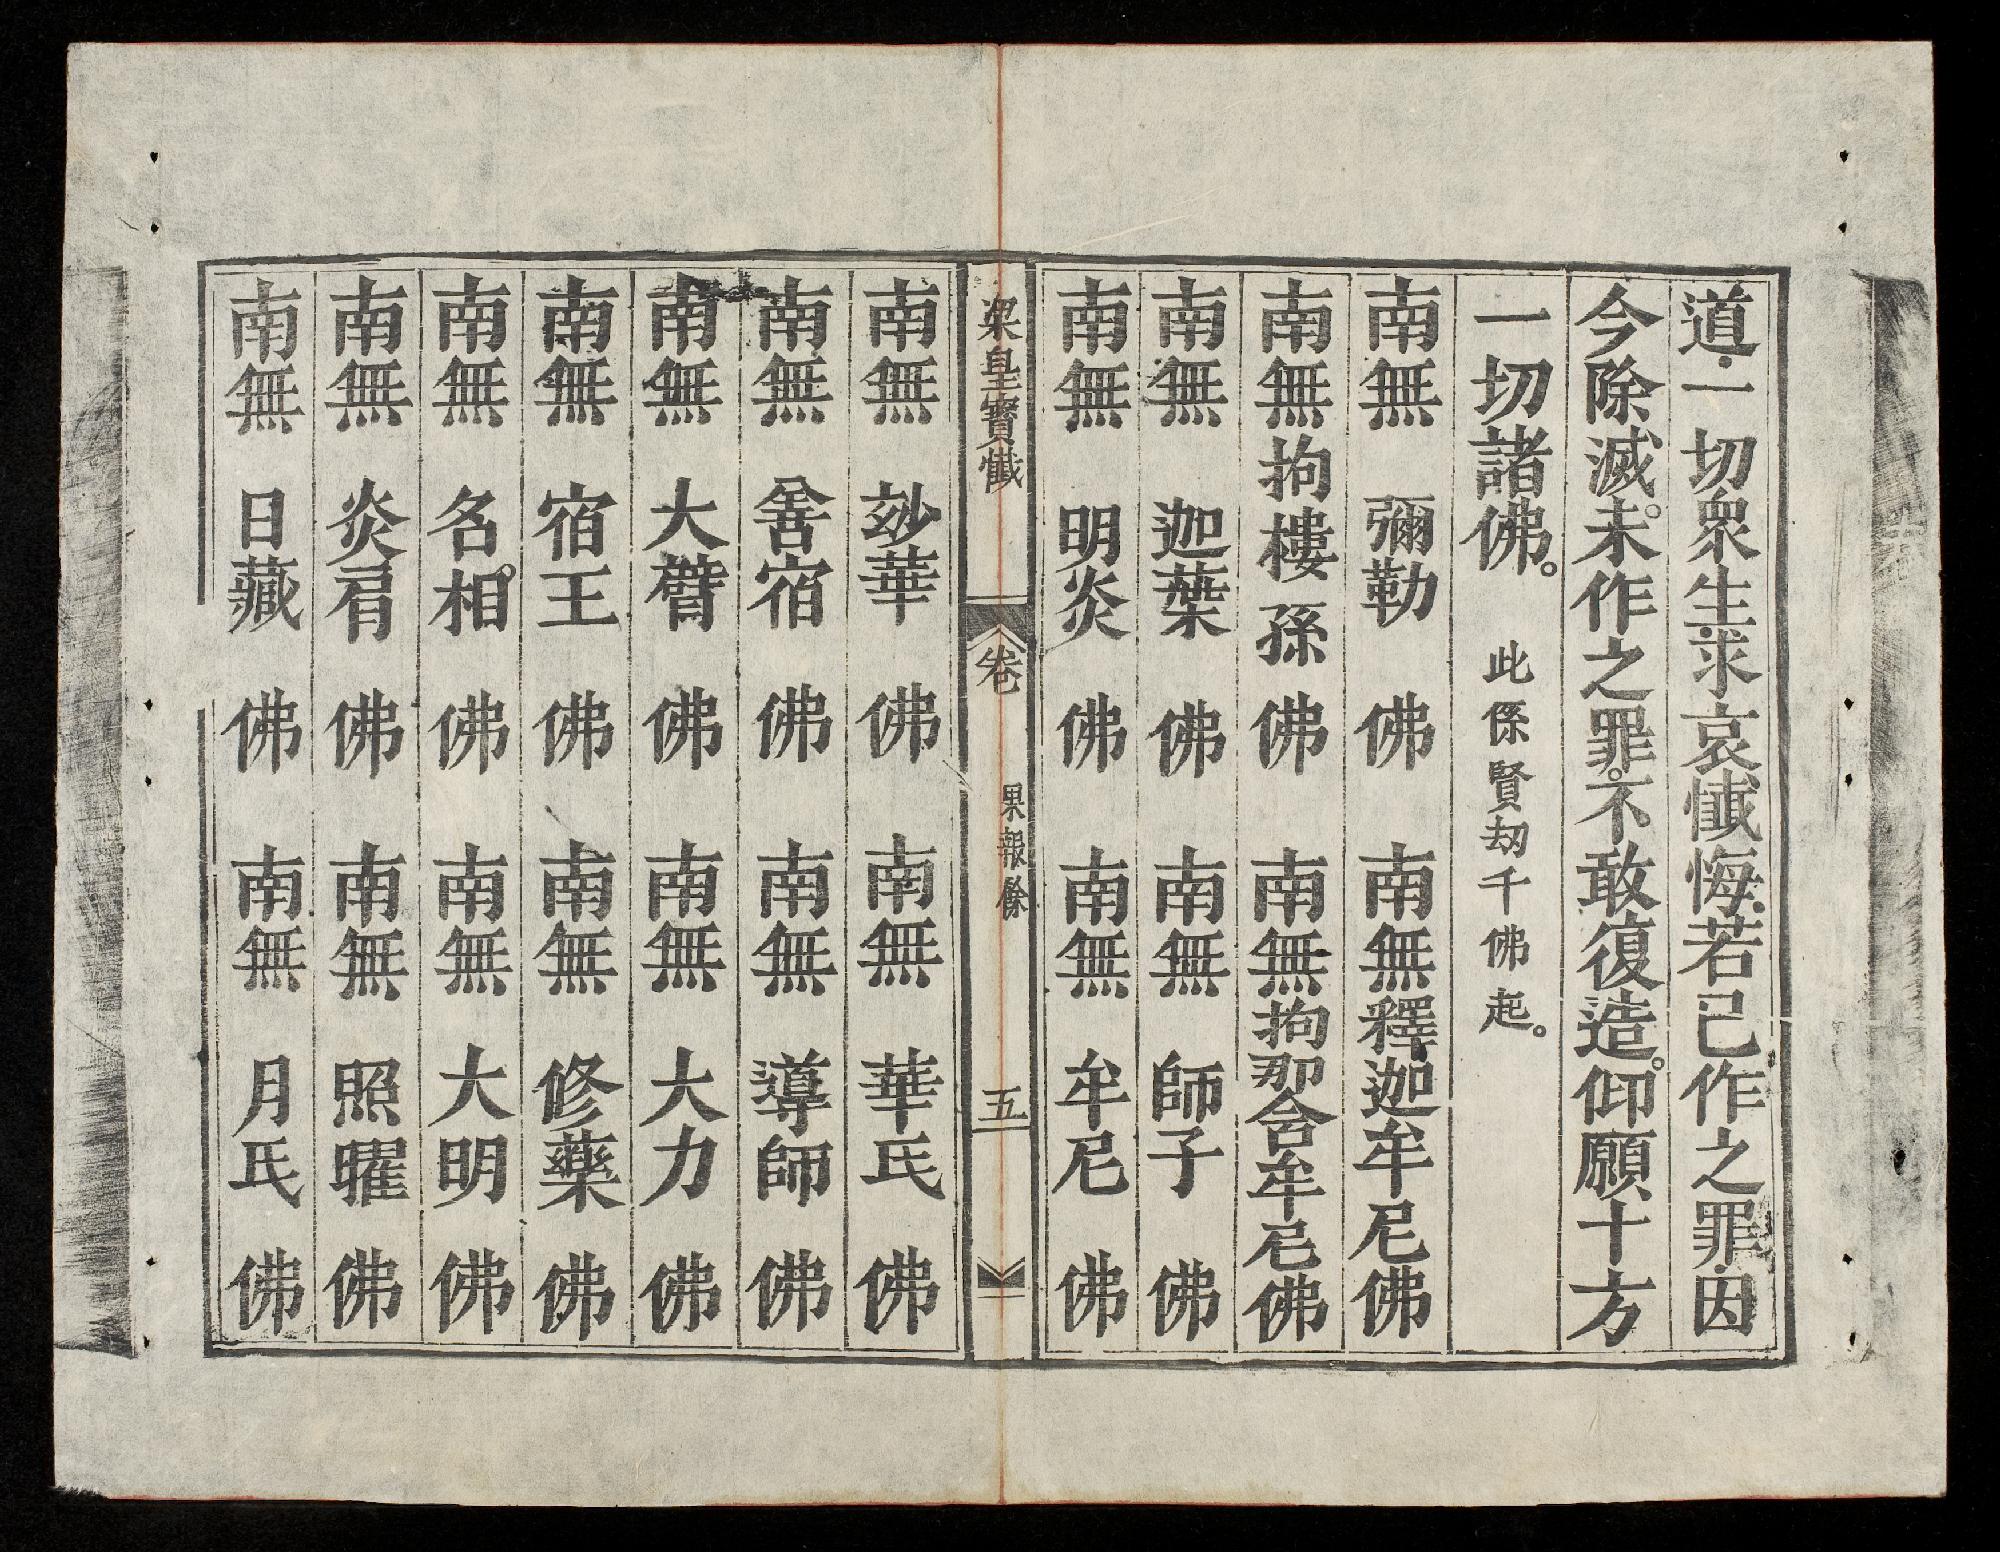 道一切眾生求哀懺悔若已作之罪因
今除滅未作之罪不敢復造仰願十方
一切諸佛。 此係賢劫千佛起。
南無 彌勒 佛 南無釋迦牟尼佛
南無拘樓孫佛 南無拘那含牟尼佛
南無 迦葉 佛 南無 師子 佛
南無 明炎 佛 南無 牟尼 佛
梁皇寶懺 卷 果報餘 五
南無 玅華 佛 南無 華氏 佛
南無 善宿 佛 南無 導師 佛
南無 大臂 佛 南無 大力 佛
南無 宿王 佛 南無 修藥 佛
南無 名相 佛 南無 大明 佛
南無 炎肩 佛 南無 照曜 佛
南無 日藏 佛 南無 月氏 佛